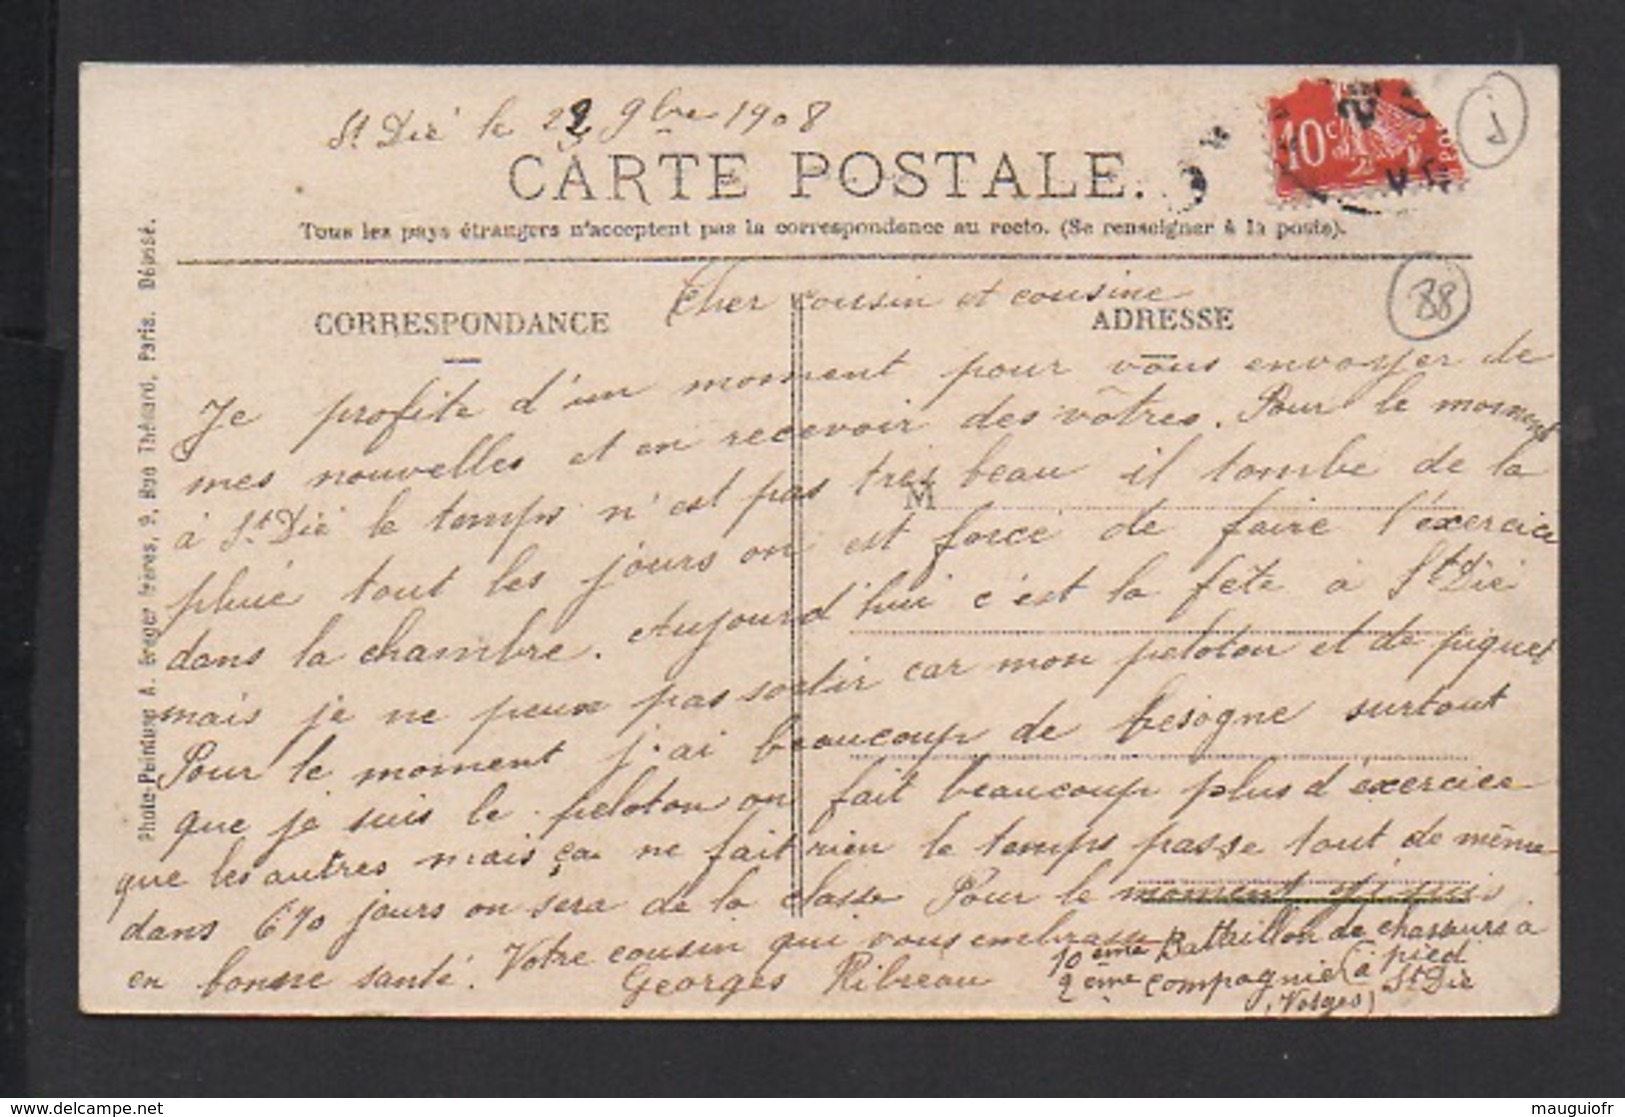 St Dié le 22 9bre 1908
CARTE POSTALE.
Tous les pays étrangers n'acceptent pas la correspondance au recto. (Se renseigner à la poste).
10c
J
88
CORRESPONDANCE
ADRESSE
M
Photo-Peinture A. Breger frères, 9, Rue Thénard, Paris. Déposé.
Cher cousin et cousine
Je profite d'un moment pour vous envoyer de
mes nouvelles et en recevoir des vôtres. Pour le moment
à St Dié le temps n'est pas très beau il tombe de la
pluie tout les jours on est forcé de faire l'exercice
dans la chambre. Aujourd'hui c'est la fête à St Dié
mais je ne peux pas sortir car mon peloton et de piquet
Pour le moment j'ai beaucoup de besogne surtout
que je suis le peloton on fait beaucoup plus d'exercice
que les autres mais ça ne fait rien le temps passe tout de même
dans 670 jours on sera de la classe Pour le moment je suis
en bonne santé. Votre cousin qui vous embrasse
Georges Ribreau
10ème Battaillon de chasseurs à pied
2ème compagnie (à St Dié
(Vosges)
delcampe.net
mauguiofr